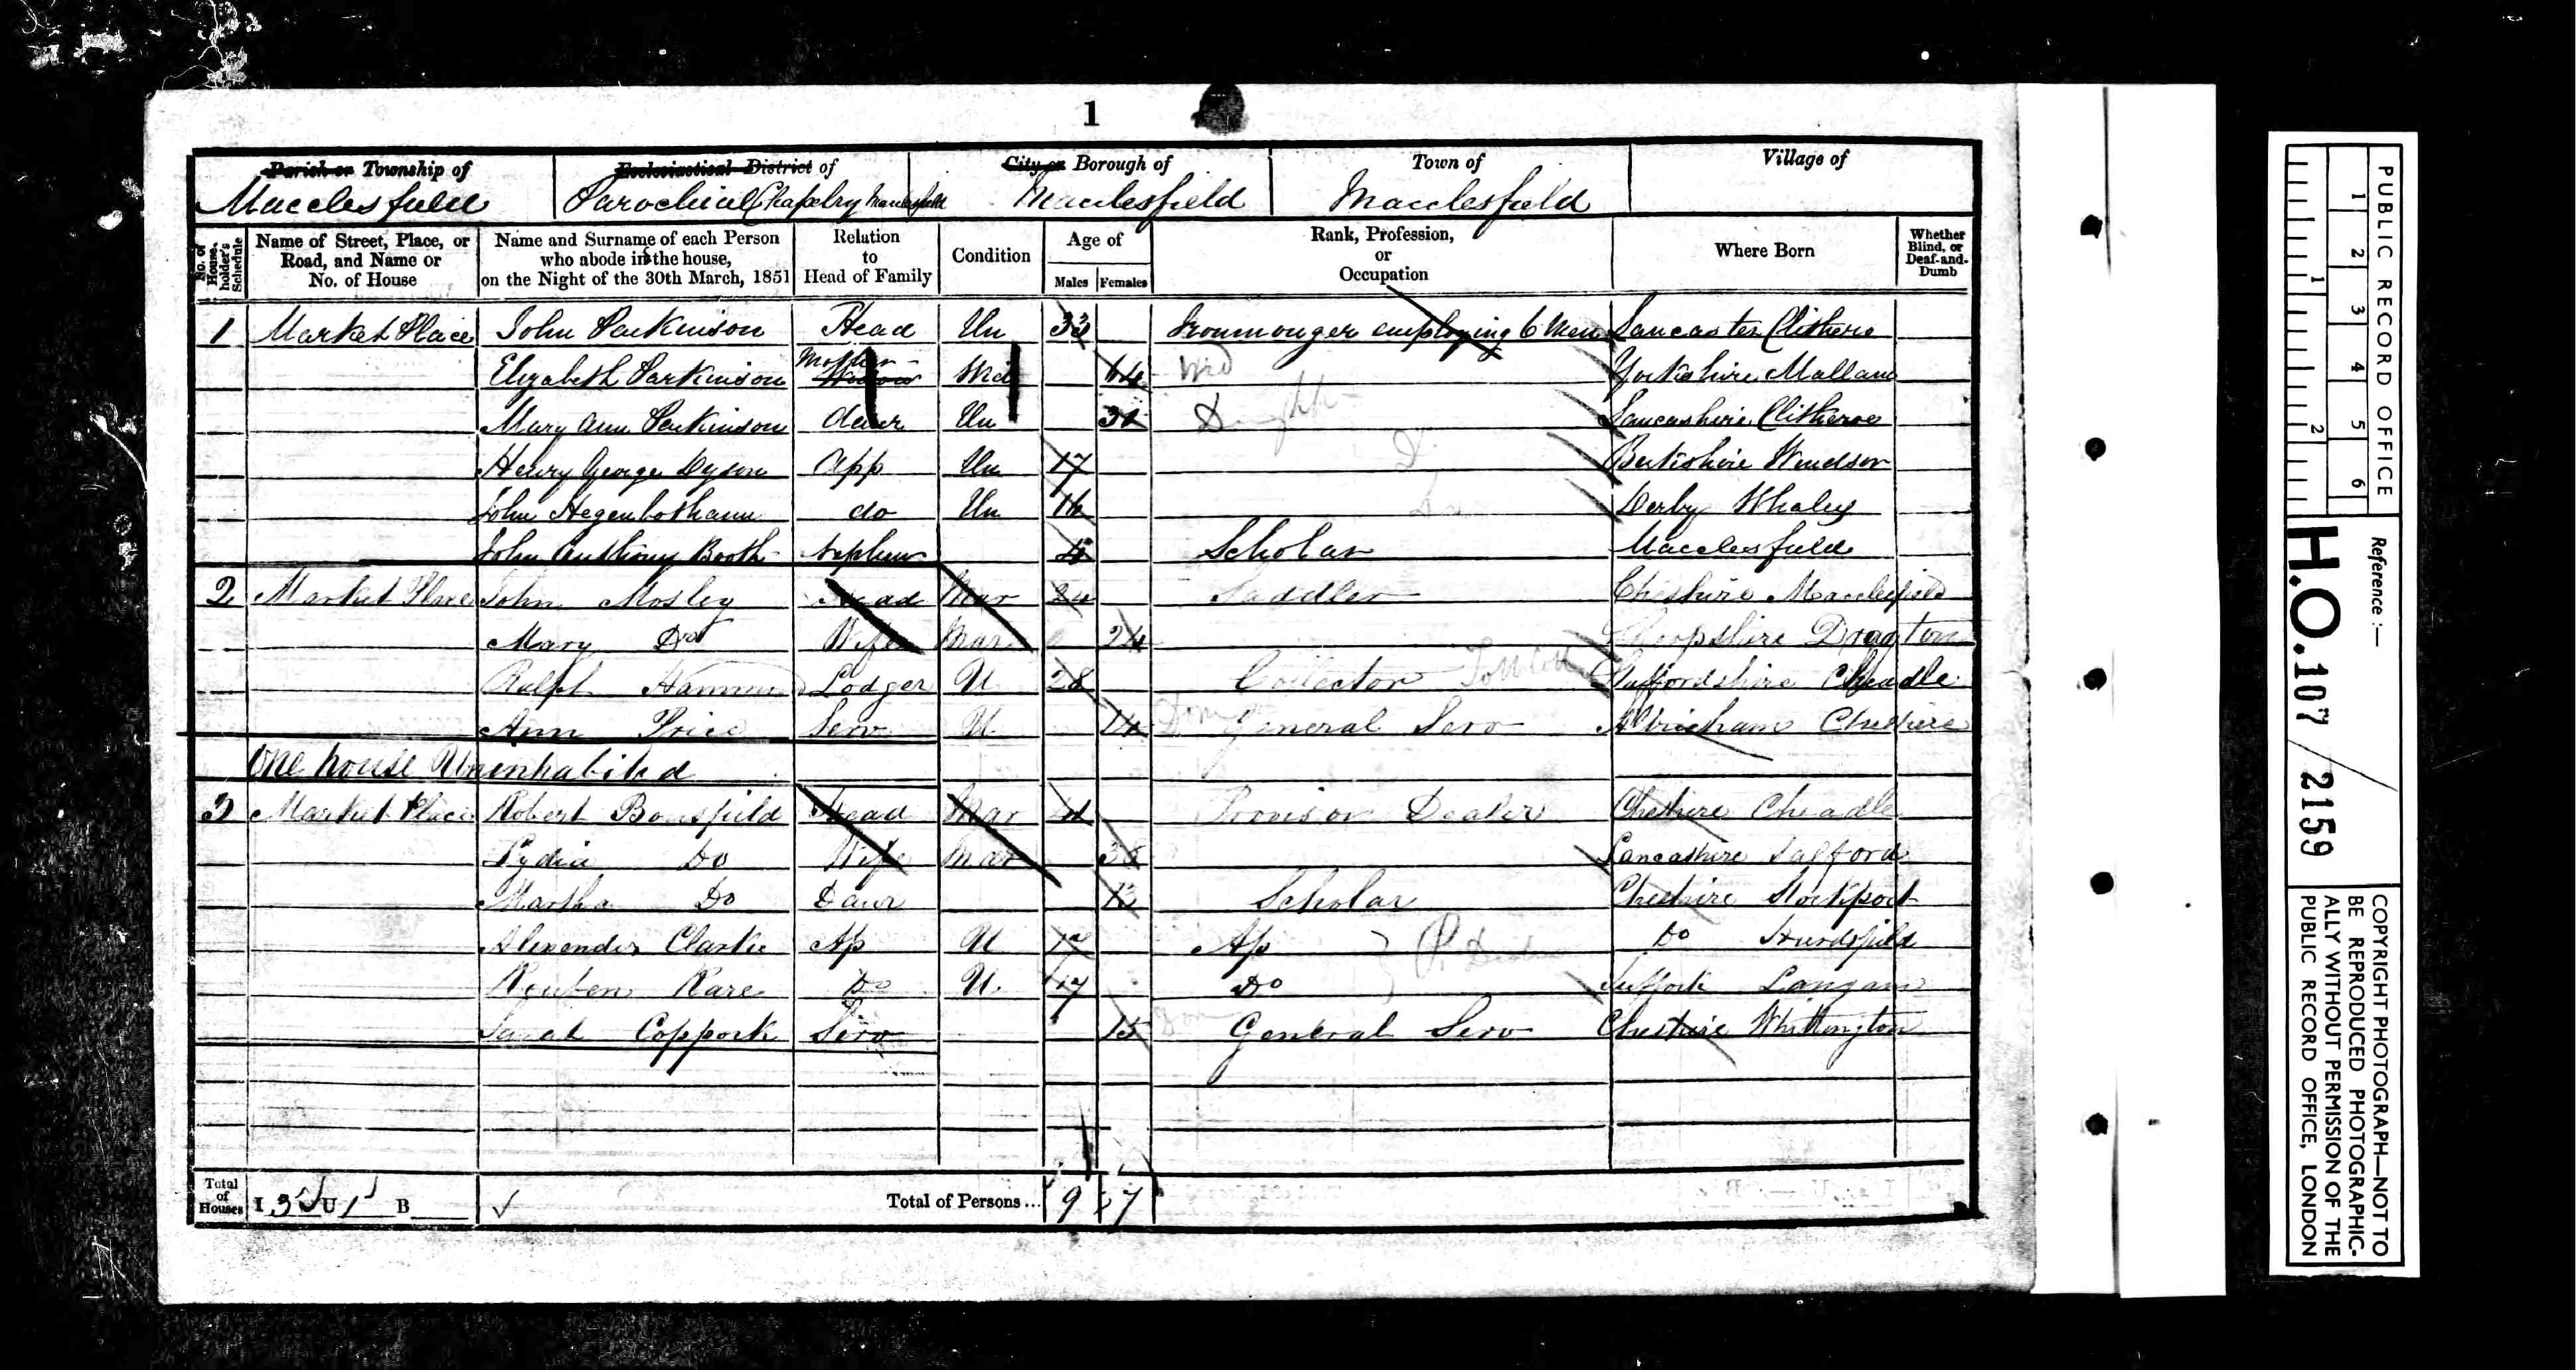 1
Parish or Township of Ecclesiastical District of City or Borough of Town of Village of
Macclesfield Parochial Chapelry Macclesfield Macclesfield Macclesfield
No. of House-holder's Schedule
Name of Street, Place, or Road, and Name or No. of House
Name and Surname of each Person who abode in the house, on the Night of the 30th March, 1851
Relation to Head of Family
Condition
Age of
Males Females
Rank, Profession, or Occupation
Where Born
Whether Blind, or Deaf-and-Dumb
1 Market Place John Parkinson Head Un 33 Ironmonger employing 6 Men Lancaster Clithero
Elizabeth Parkinson Mother Widow Wd 64 Wid Yorkshire
Mary Ann Parkinson daur Un Daughtr Lancashire Clitheroe
Henry George Dyson App Un 17 Berkshire Windsor
John Hegenbotham do Un 16 Derby Whaley
John Anthony Booth Nephew 4 Scholar Macclesfield
2 Market Place John Mosley Head Mar 24 Saddler Cheshire Macclesfield
Mary Do Wife Mar 24 Shropshire Drayton
Ralph Lodger U 28 Collector Toll Coll Staffordshire Cheadle
Ann Price Serv U 14 Dom General Serv Altrincham Cheshire
One house Uninhabited
3 Market Place Robert Bousfield Head Mar Provision Dealer Cheshire Cheadle
Lydia Do Wife Mar Lancashire Salford
Martha Do Daur 12 Scholar Cheshire Stockport
Alexander Clarke Ap U 17 Ap P. Dealer Do Hurdsfield
Reuben Rare Do U. 17 Do Suffolk Langam
Sarah Coppock Serv 15 Dom General Serv Cheshire Whittington
Total of Houses I 3 U 1 B Total of Persons... 9 7
PUBLIC RECORD OFFICE
1 2 3 4 5 6
1 2
Reference :—
H.O. 107 / 2159
COPYRIGHT PHOTOGRAPH—NOT TO BE REPRODUCED PHOTOGRAPHIC-ALLY WITHOUT PERMISSION OF THE PUBLIC RECORD OFFICE, LONDON